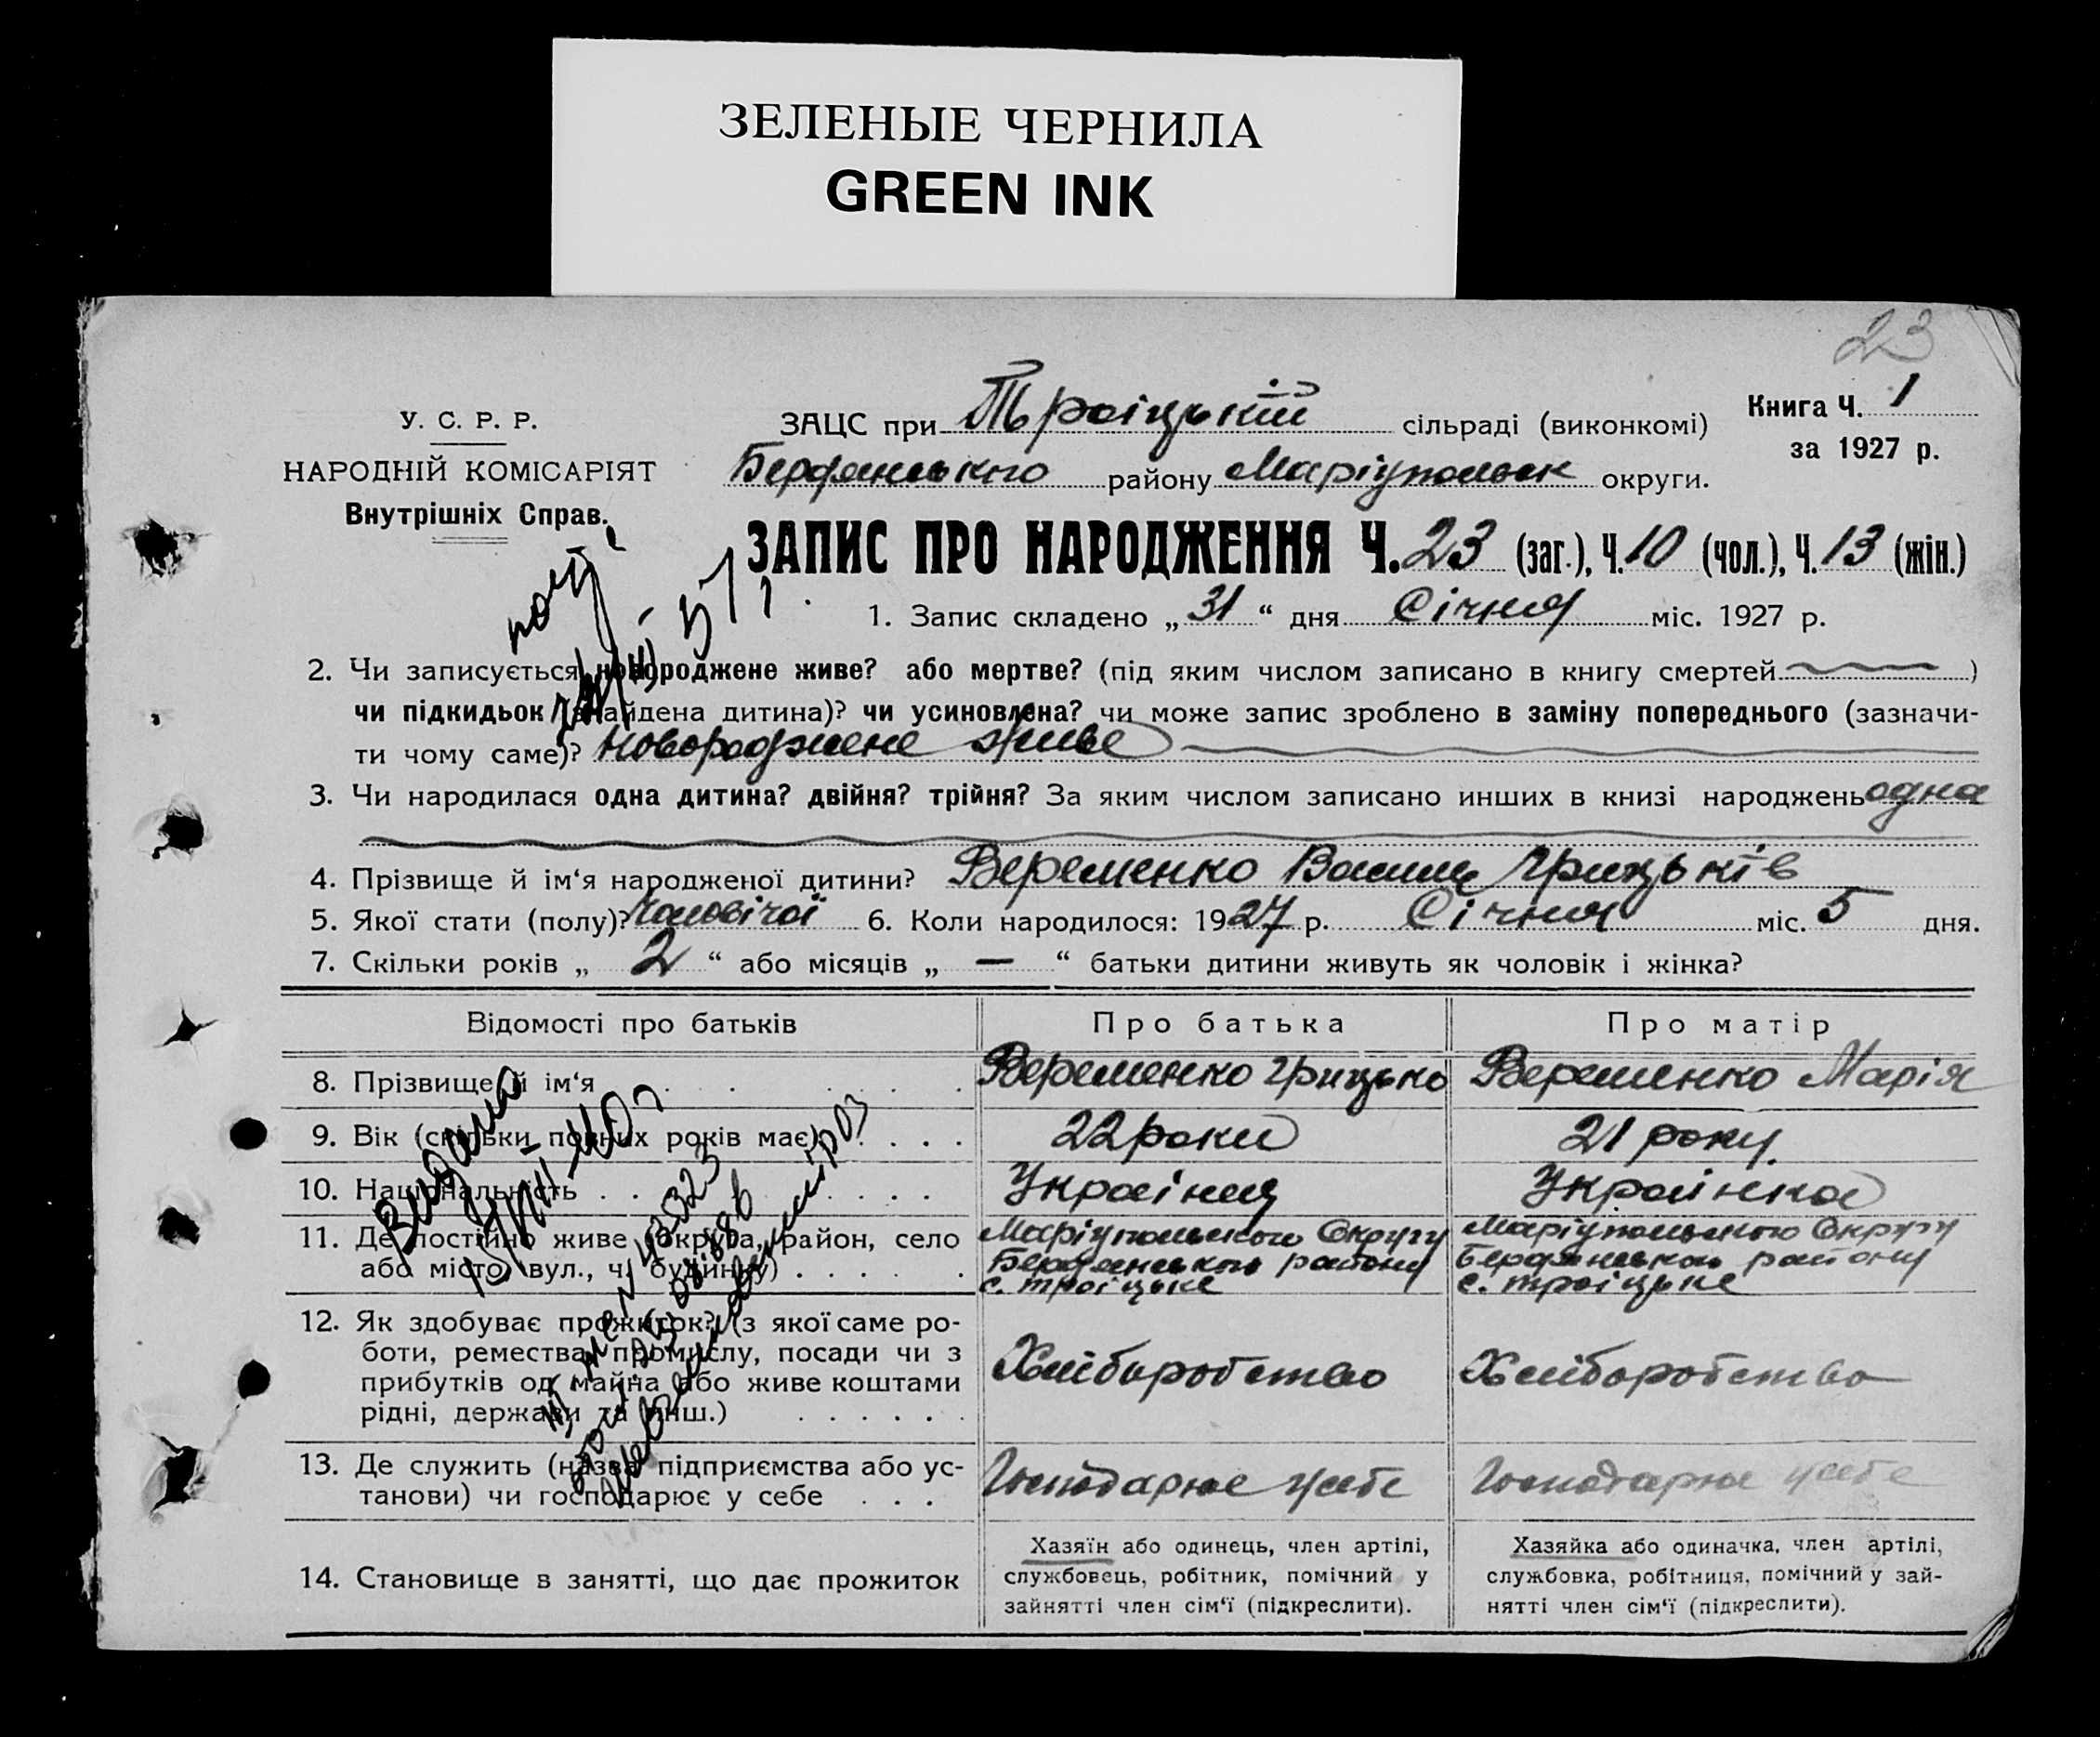 ЗЕЛЕНЫЕ ЧЕРНИЛА
GREEN INK
23
У. С. Р. Р.
НАРОДНІЙ КОМІСАРІЯТ
Внутрішніх Справ.
ЗАЦС при Троіцькій сільраді (виконкомі)
Бердянського району Маріупольськ округи.
Книга Ч. 1
за 1927 р.
ЗАПИС ПРО НАРОДЖЕННЯ Ч. 23 (заг.), Ч. 10 (чол.), Ч. 13 (жін.)
1. Запис складено „ 31 “ дня Січня міс. 1927 р.
2. Чи записується новороджене живе? або мертве? (під яким числом записано в книгу смертей )
чи підкидьок (знайдена дитина)? чи усиновлена? чи може запис зроблено в заміну попереднього (зазначи-
ти чому саме)? Новороджене живе
3. Чи народилася одна дитина? двійня? трійня? За яким числом записано инших в книзі народжень одна
4. Прізвище й ім‘я народженої дитини? Веременко Василь Грицьків
5. Якої стати (полу)? Чоловічої 6. Коли народилося: 1927 р. Січня міс. 5 дня.
7. Скільки років „ 2 “ або місяців „ — “ батьки дитини живуть як чоловік і жінка?
Відомості про батьків
Про батька
Про матір
8. Прізвище й ім‘я
Веременко Грицько
Веременко Марія
9. Вік (скільки повних років має)
22 роки
21 року
10. Національність
Украінец
Украинка
11. Де постійно живе (округа, район, село
або місто, вул., ч. будинку)
Маріупольского Округу
Бердянського району
с. Троіцьке
Маріупольского Округу
Бердянського району
с. Троіцьке
12. Як здобуває прожиток? (з якої саме ро-
боти, ремества, промислу, посади чи з
прибутків од майна або живе коштами
рідні, держави та инш.)
Хліборобство
Хліборобство
13. Де служить (назва підприємства або ус-
танови) чи господарює у себе
Господарює у себе
Господарює у себе
14. Становище в занятті, що дає прожиток
Хазяїн або одинець, член артілі,
службовець, робітник, помічний у
зайнятті член сім‘ї (підкреслити).
Хазяйка або одиначка, член артілі,
службовка, робітниця, помічний у зай-
нятті член сім‘ї (підкреслити).
Видано